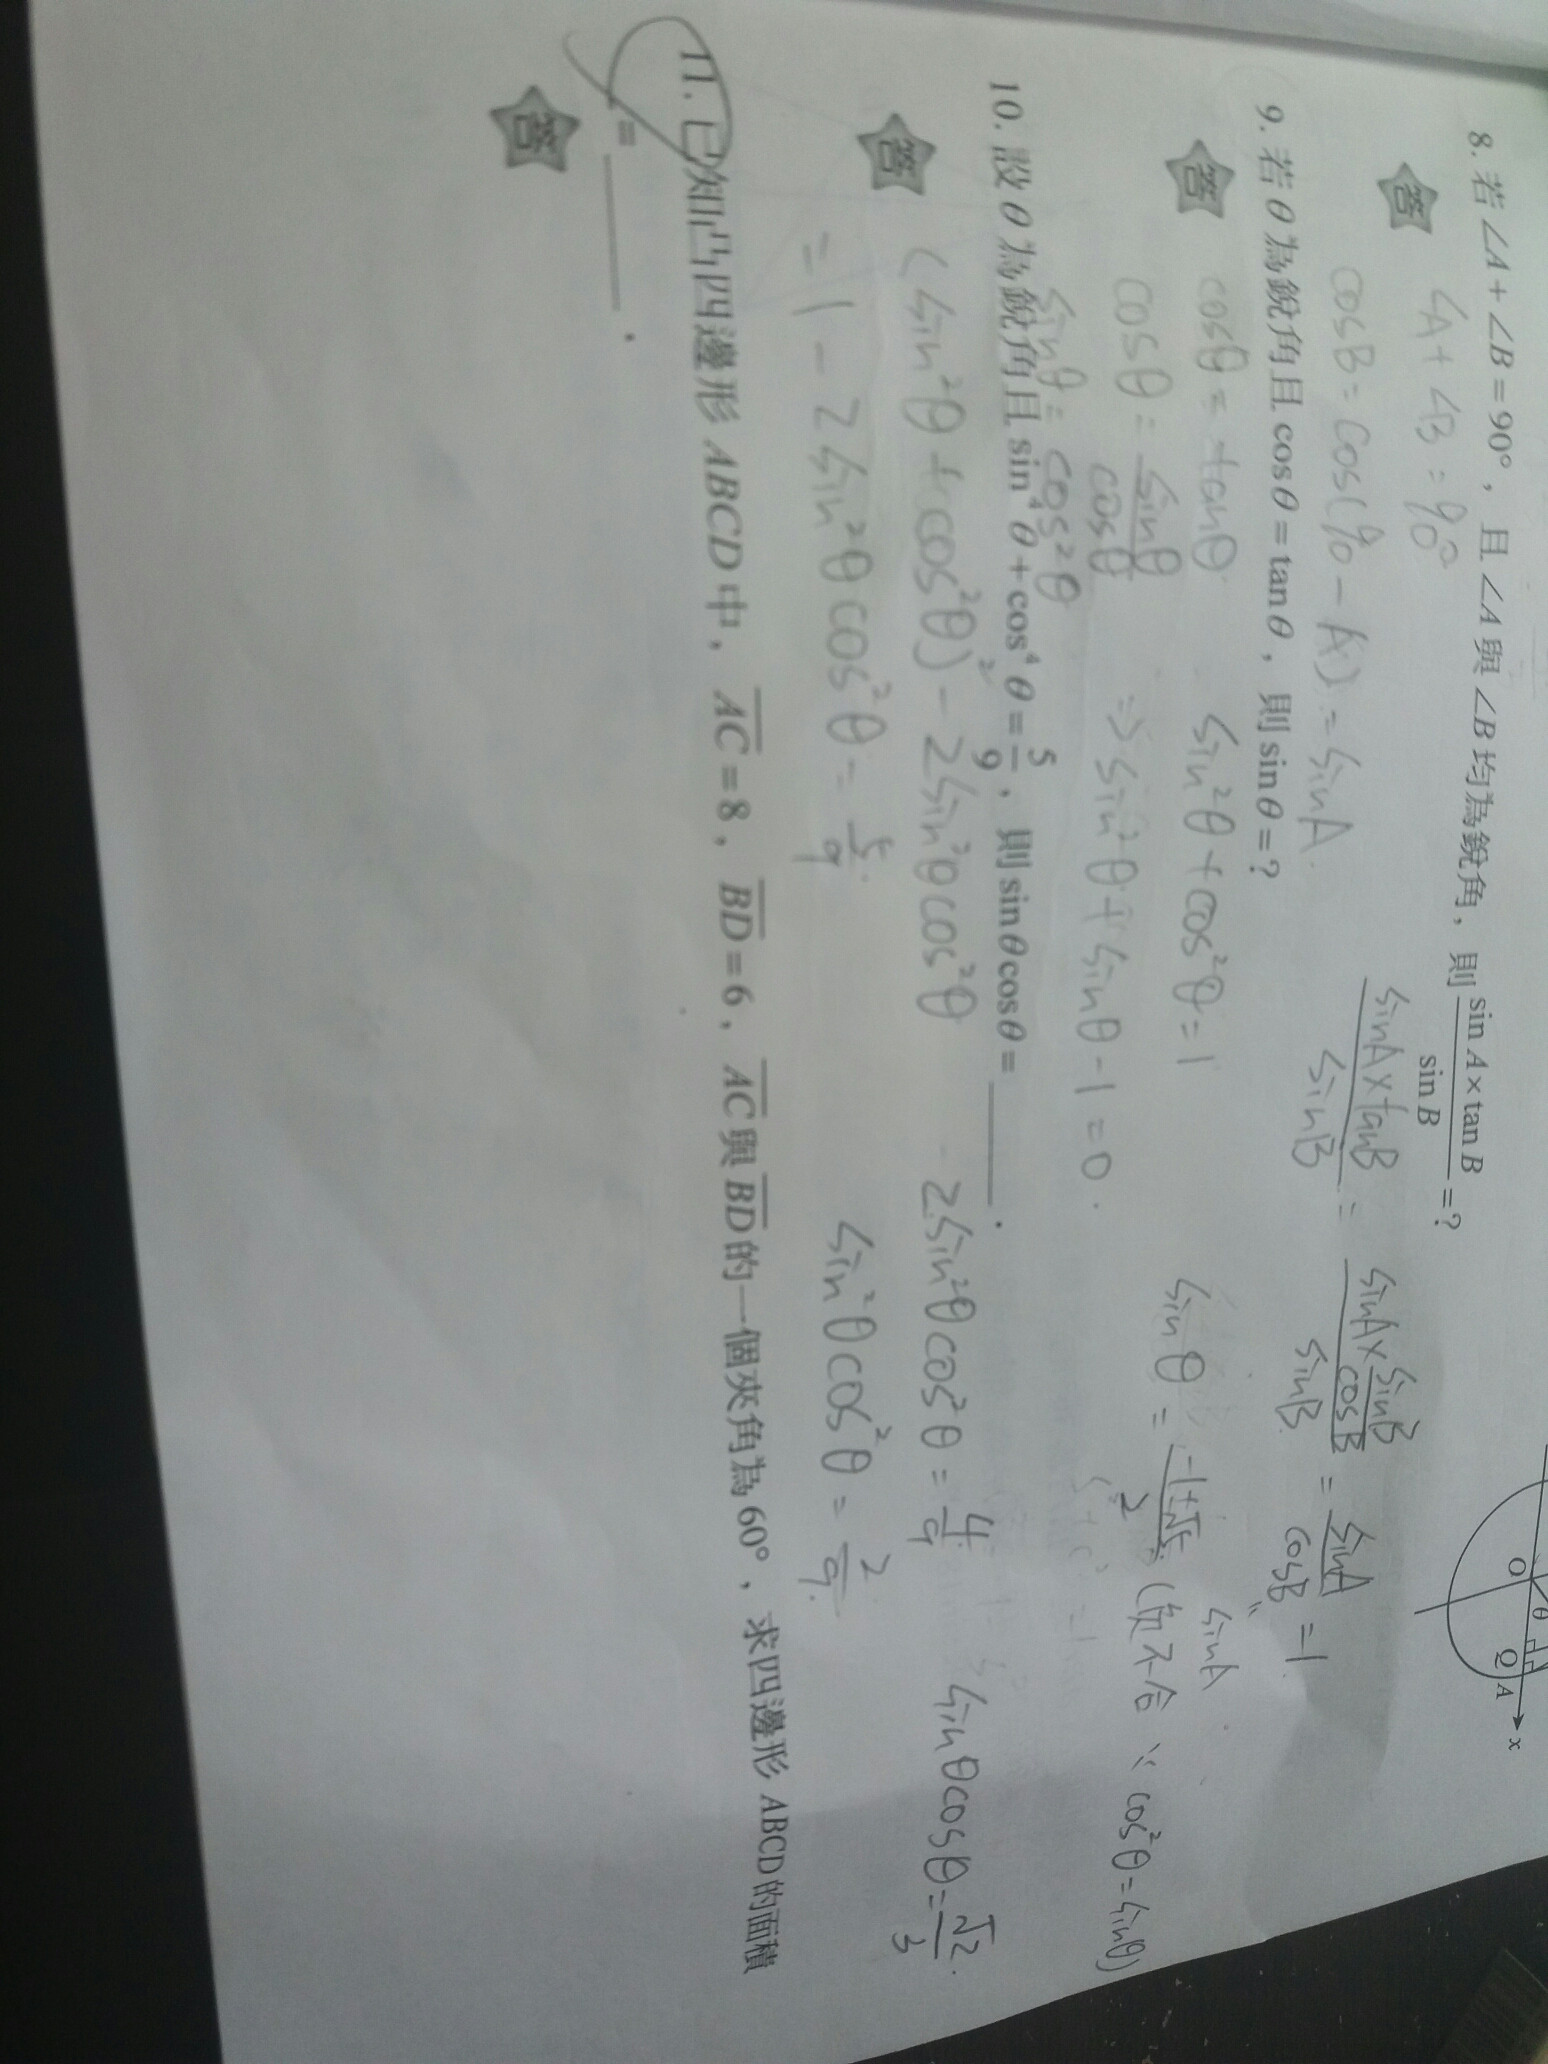 8. 若∠A+∠B=90°，且∠A與∠B均為銳角，則 sin A×tan B / sin B =？
O θ Q A x
答 ∠A+∠B=90°
cosB=cos(90-A)=sinA. sinA×tanB / sinB = sinA× sinB/cosB / sinB = sinA / cosB =1
sinA
9. 若θ為銳角且cosθ=tanθ，則sinθ=？
答 cosθ=tanθ. sin²θ+cos²θ=1
cosθ= sinθ/cosθ ⇒ sin²θ+sinθ-1=0. sinθ = -1+√5 / 2 (負不合 ∵ cos²θ=sinθ)
sinθ=cos²θ
10. 設θ為銳角且sin⁴θ+cos⁴θ=5/9，則sinθcosθ=＿＿＿．
答 (sin²θ+cos²θ)²-2sin²θcos²θ 2sin²θcos²θ=4/9 sinθcosθ=√2/3.
=1-2sin²θcos²θ=5/9. sin²θcos²θ=2/9.
11. 已知凸四邊形ABCD中，AC=8，BD=6，AC與BD的一個夾角為60°，求四邊形ABCD的面積
=＿＿＿．
答